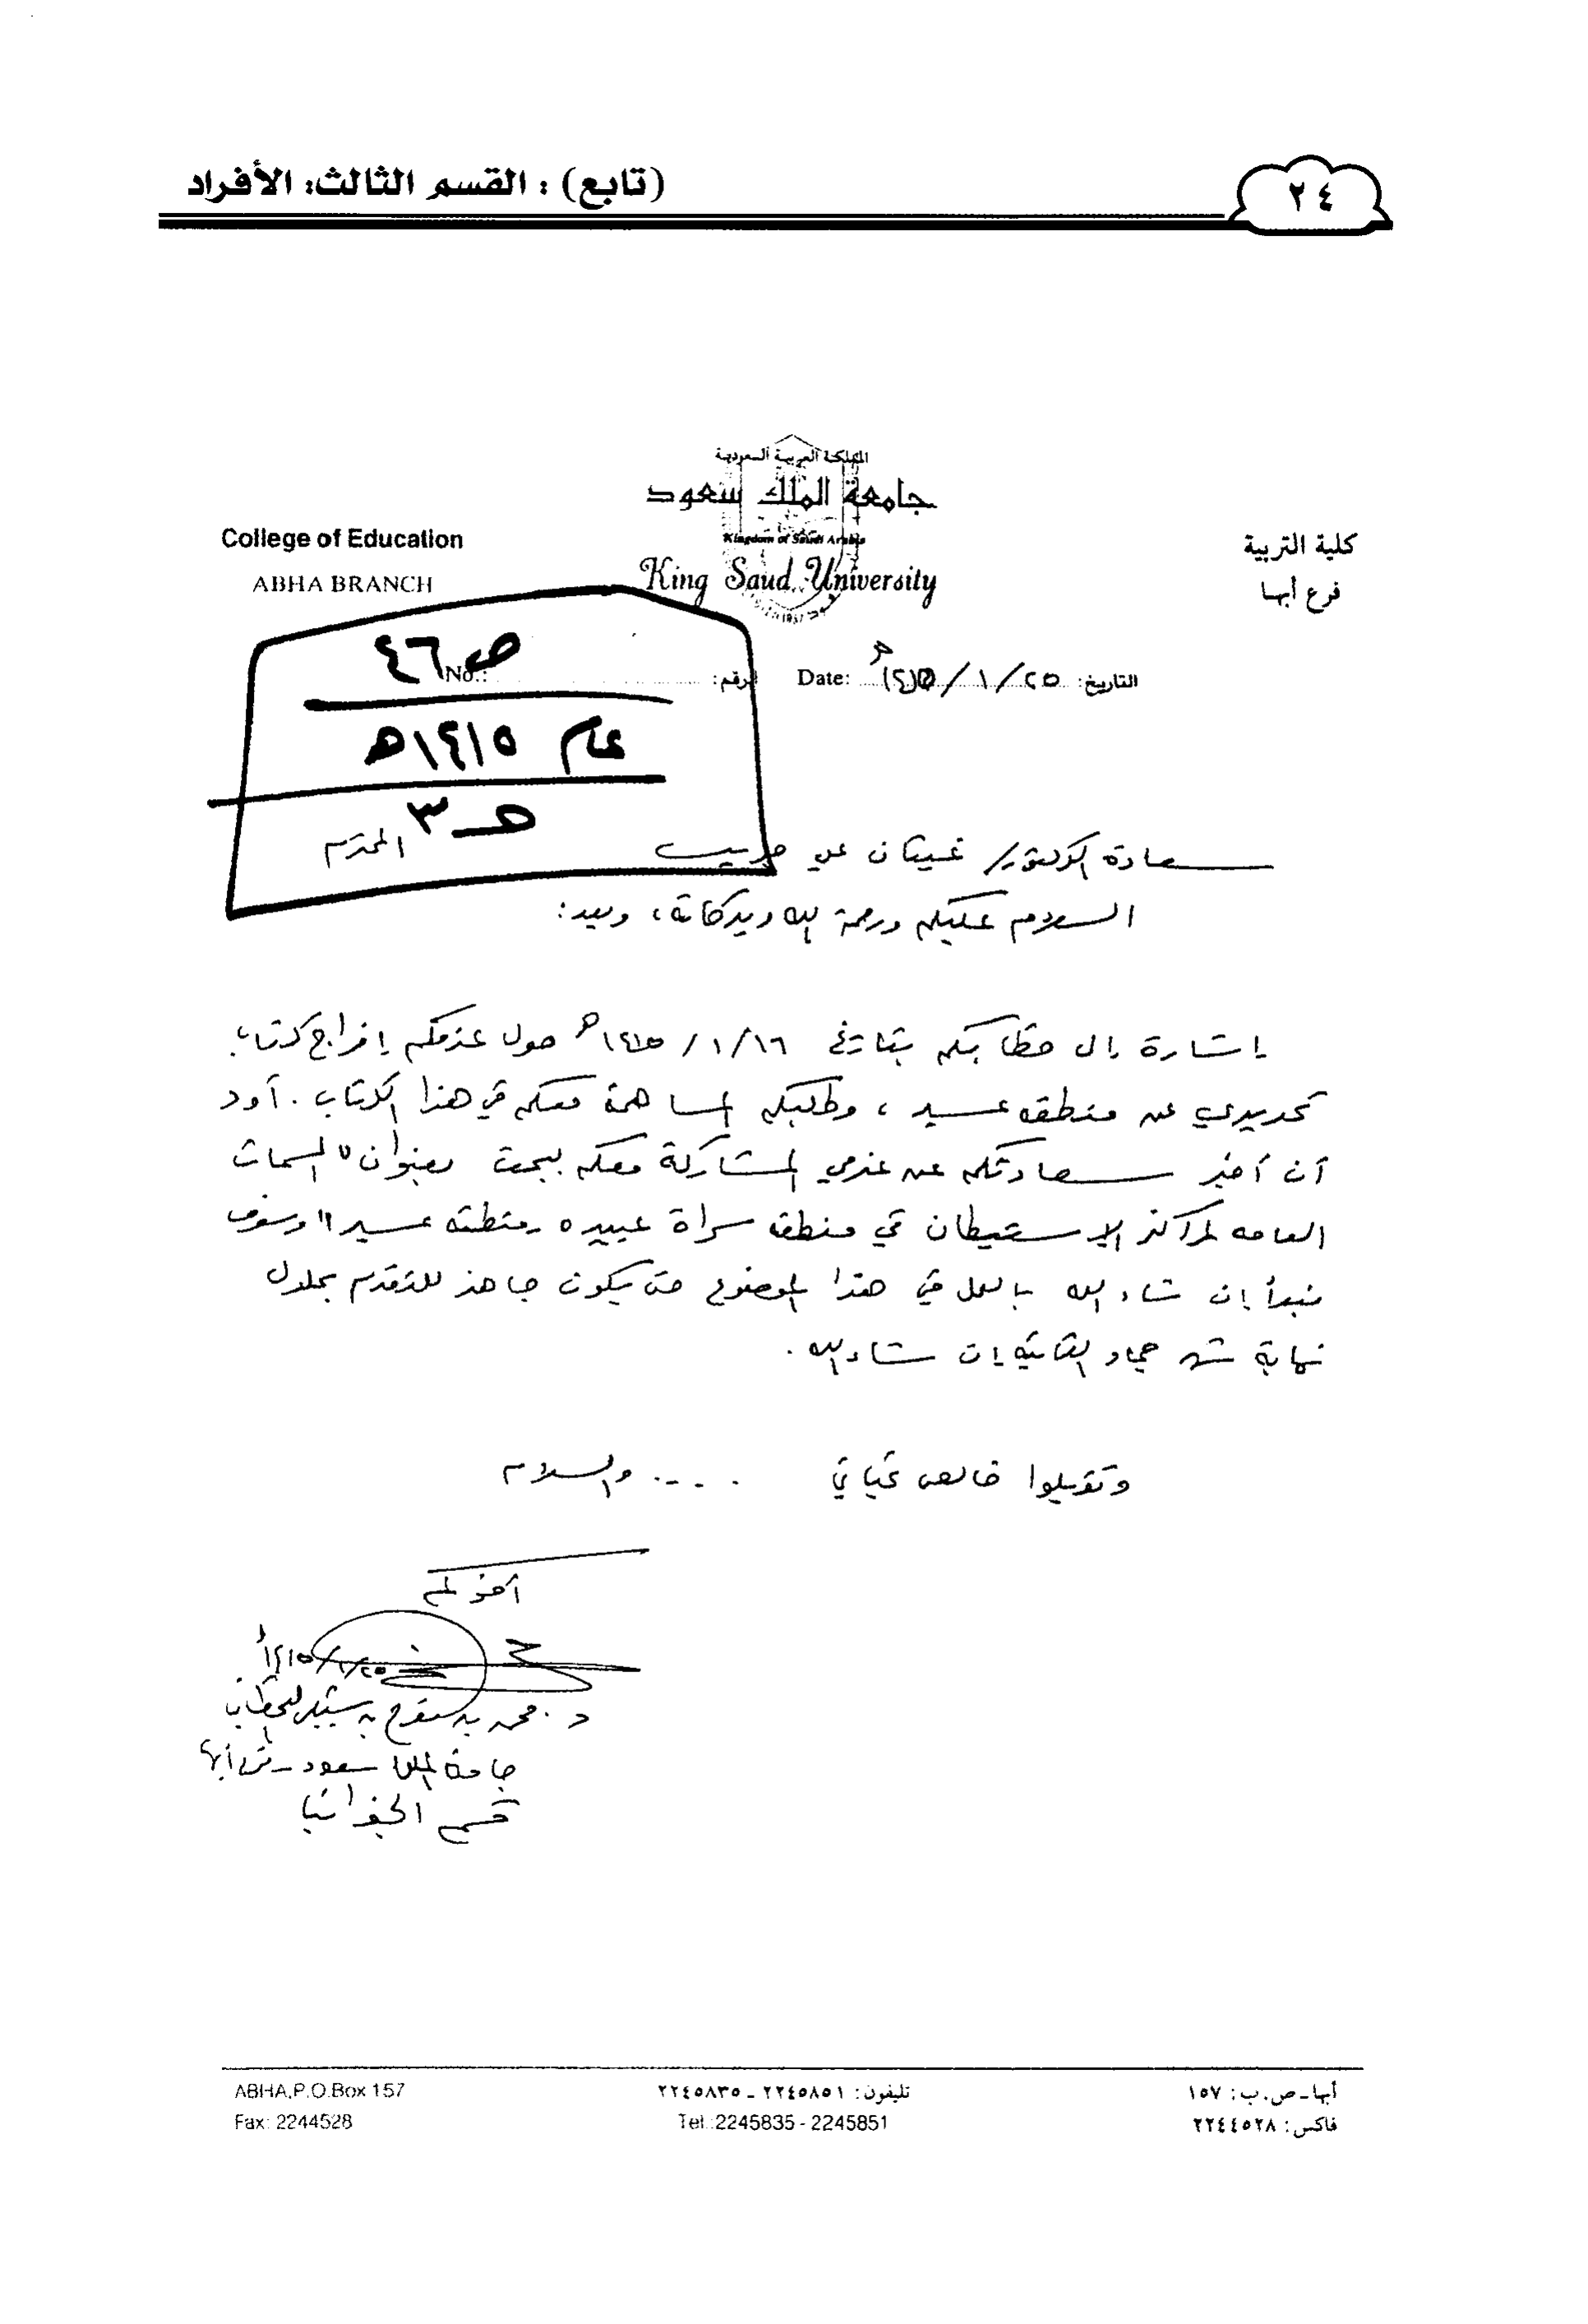 (تابع) : القسم الثالث: الأفراد
٢٤
المملكة العربية السعودية
جامعة الملك سعود
Kingdom of Saudi Arabia
King Saud University
College of Education
ABHA BRANCH
كلية التربية
فرع أبها
التاريخ: ٢٥/١/١٤١٥هـ Date:
الرقم: No.:
ص ٤٦
عام ١٤١٥هـ
هـ ٣
سعادة الدكتور/ غيثان علي جريس المحترم
السلام عليكم ورحمة الله وبركاته، وبعد:
إشارة إلى خطابكم بتاريخ ١٦/١/١٤١٥هـ حول عزمكم إخراج كتاب
تحريري عن منطقة عسير، وطلبكم المساهمة معكم في هذا الكتاب. أود
أن أخبر سعادتكم عن عزمي المشاركة معكم ببحث بعنوان "السمات
العامه لمراكز الاستيطان في منطقة سراة عبيده بمنطقة عسير" وسوف
نبدأ إن شاء الله بالعمل في هذا الموضوع حتى يكون جاهز للتقدم بحلول
نهاية شهر جماد الثانية إن شاء الله.
وتقبلوا خالص تحياتي .... والسلام
أخوكم
٢٥/١/١٤١٥هـ
د. محمد بن مفرح بن شبلي القحطاني
جامعة الملك سعود - فرع أبها
قسم الجغرافيا
ABHA,P.O.Box 157
تليفون: ٢٢٤٥٨٥١ - ٢٢٤٥٨٣٥
أبها - ص.ب: ١٥٧
Fax: 2244528
Tel.:2245835 - 2245851
فاكس: ٢٢٤٤٥٢٨